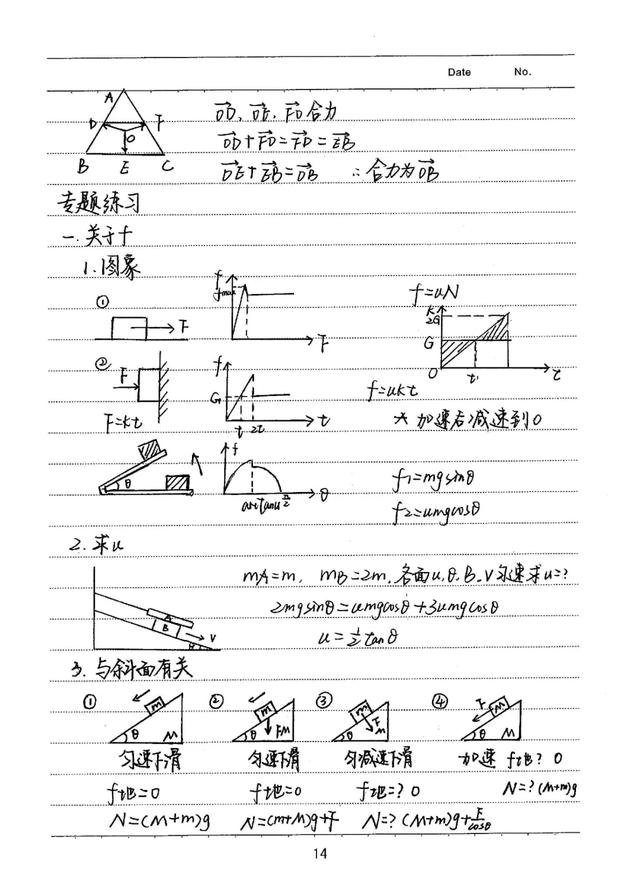 Date No.
A
D O F
B E C
OD, OE, FO 合力
OD+FO=FD=EB
OE+EB=OB ∴合力为OB
专题练习
一.关于f
1.图象
① F
f fmax F
f=uN
K 2G G O t1 t
② F
F=kt
f G t 2t t
f=ukt
* 加速后减速到0
θ
f arctanu π/2 θ
f1=mgsinθ
f2=umgcosθ
2.求u
A B V θ
mA=m, mB=2m,各面u,θ,B、V匀速求u=?
2mgsinθ=umgcosθ+3umgcosθ
u=1/2tanθ
3.与斜面有关
① m θ M
② m F θ M
③ m F θ M
④ F m θ M
匀速下滑 匀速下滑 匀减速下滑 加速 f地? 0
f地=0 f地=0 f地=? 0 N=? (M+m)g
N=(M+m)g N=(m+M)g+F N=? (M+m)g+F/cosθ
14